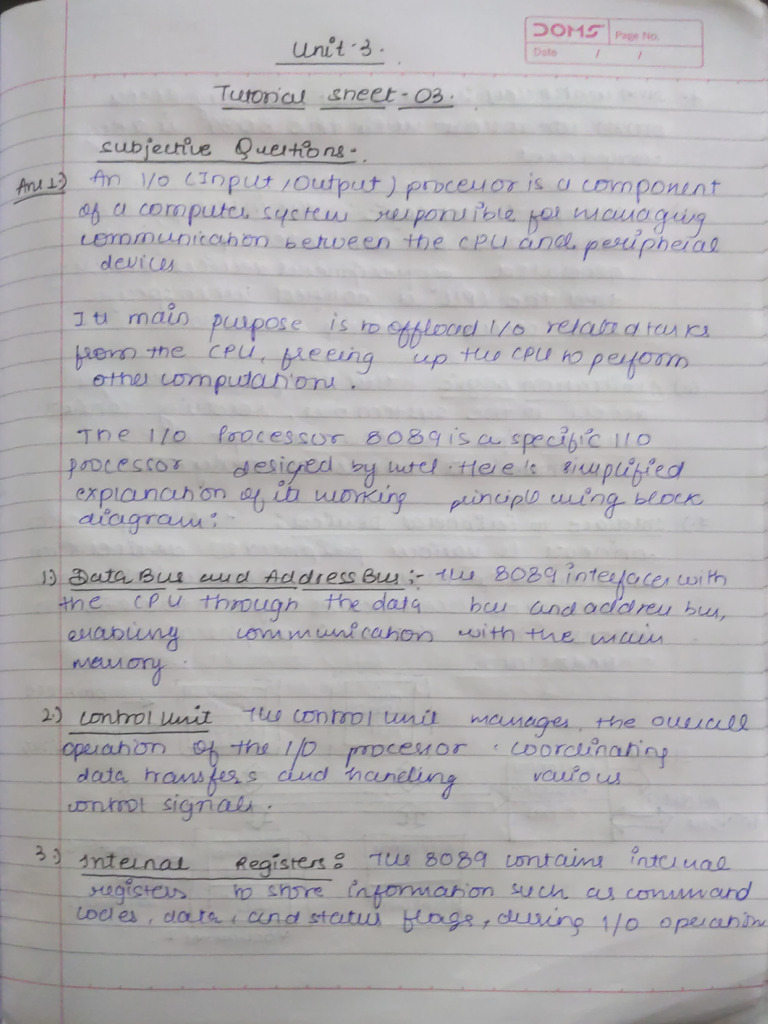 DOMS Page No.
Date / /
Unit-3.
Tutorial sheet-03.
Subjective Questions-.
Ans 1) An I/O (Input /Output) processor is a component
of a computer system responsible for managing
communication between the CPU and peripheral
devices
Its main purpose is to offload I/O related tasks
from the CPU, freeing up the CPU to perform
other computations.
The I/O Processor 8089 is a specific I/O
processor designed by intel. Here's simplified
explanation of its working principle using block
diagram:
1) Data Bus and Address Bus:- The 8089 interfaces with
the CPU through the data bus and address bus,
enabling communication with the main
memory.
2.) Control unit The control unit manages the overall
operation of the I/O processor, coordinating
data transfers and handling various
control signals.
3.) Internal Registers: The 8089 contains internal
registers to store information such as command
codes, data, and status flags, during I/O operation